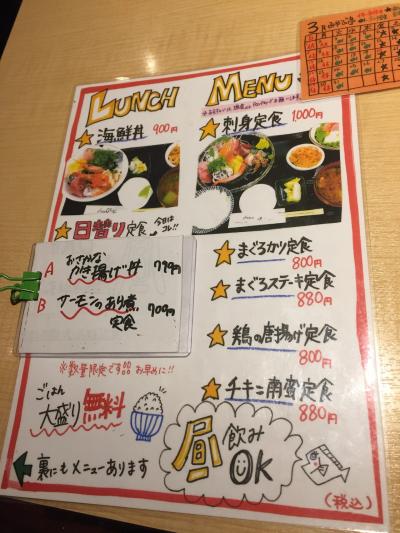 LUNCH MENU
海鮮丼 900円
刺身定食 1,000円
日替り定食 今日はコレ!!
A おさかなかき揚げ丼 779円
B サーモンのあり煮定食 709円
※数量限定です お早めに!!
まぐろカツ定食
800円
まぐろステーキ定食
880円
鶏の唐揚げ定食
800円
チキン南蛮定食
880円
ごはん
大盛り無料
昼飲み
OK
裏にもメニューあります
(税込)
3月